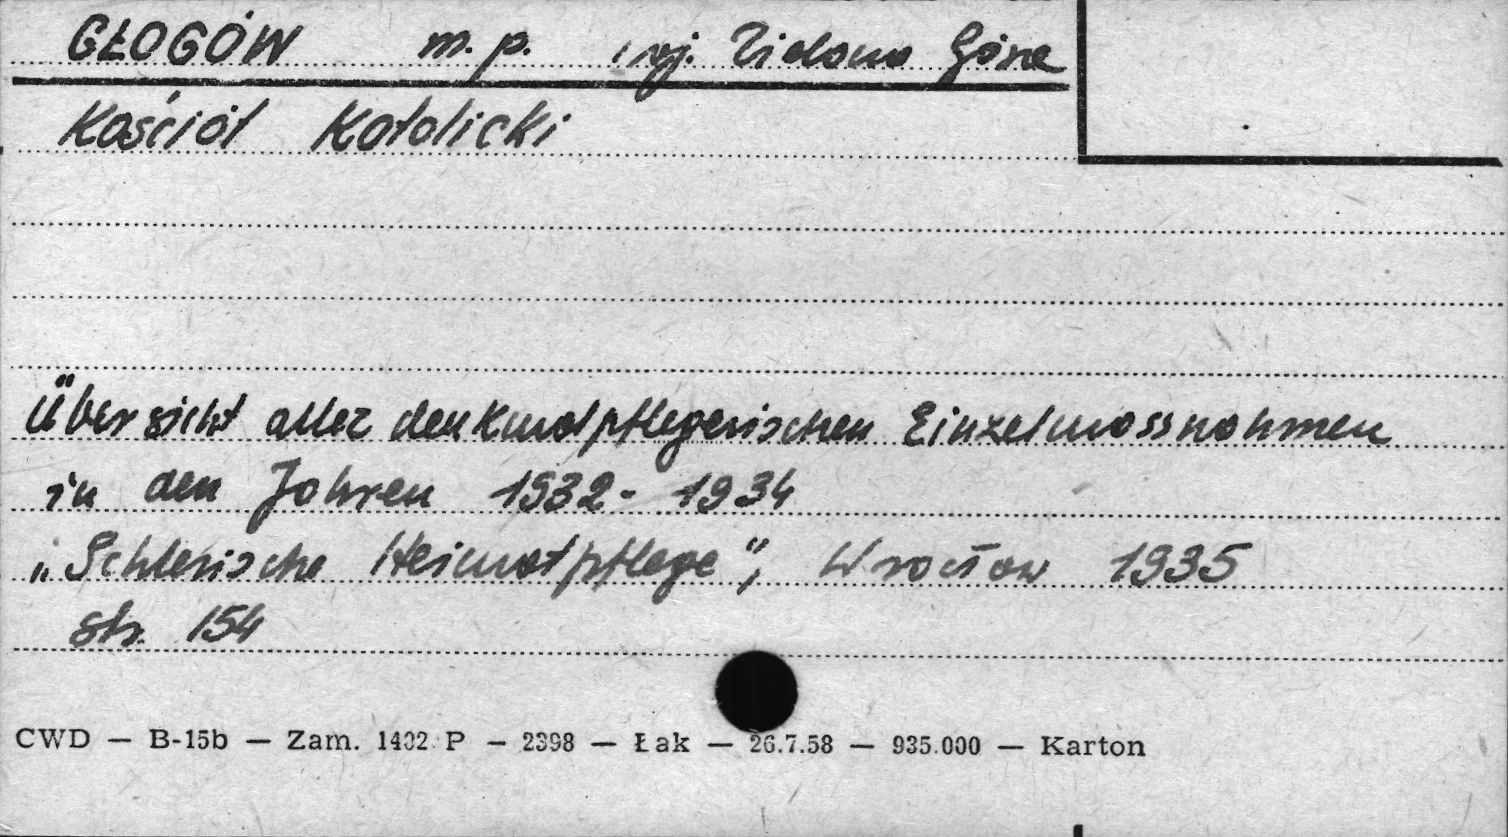 GŁOGÓW m. p. woj. Zielona Góra
Kościół Katolicki
Übersicht aller denkmalpflegerischen Einzelmassnahmen
in den Jahren 1932 - 1934
„Schlesische Heimatpflege", Wrocław 1935
str. 154
CWD — B-15b — Zam. 1402 P — 2398 — Łak — 26.7.58 — 935.000 — Karton